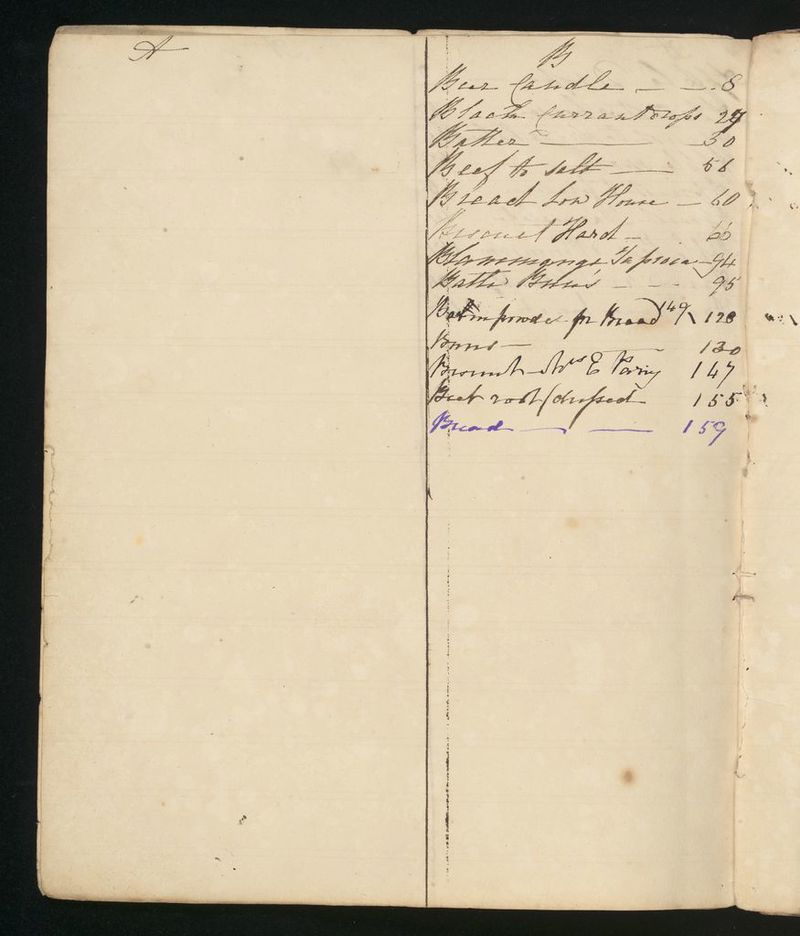 A
B
Beer Caudle — — . 8
Black Currant drops 27
Batter — 50
Beef to salt — 56
Bread Low House — 60
Biscuet Hard — 66
Blammange Tapioca — 94
Bath Buns — - - 95
powder for Bread 149 128
Buns — 130
Biscuit Mrs E Parry 147
Beet root dressed 155
Bread — — 159